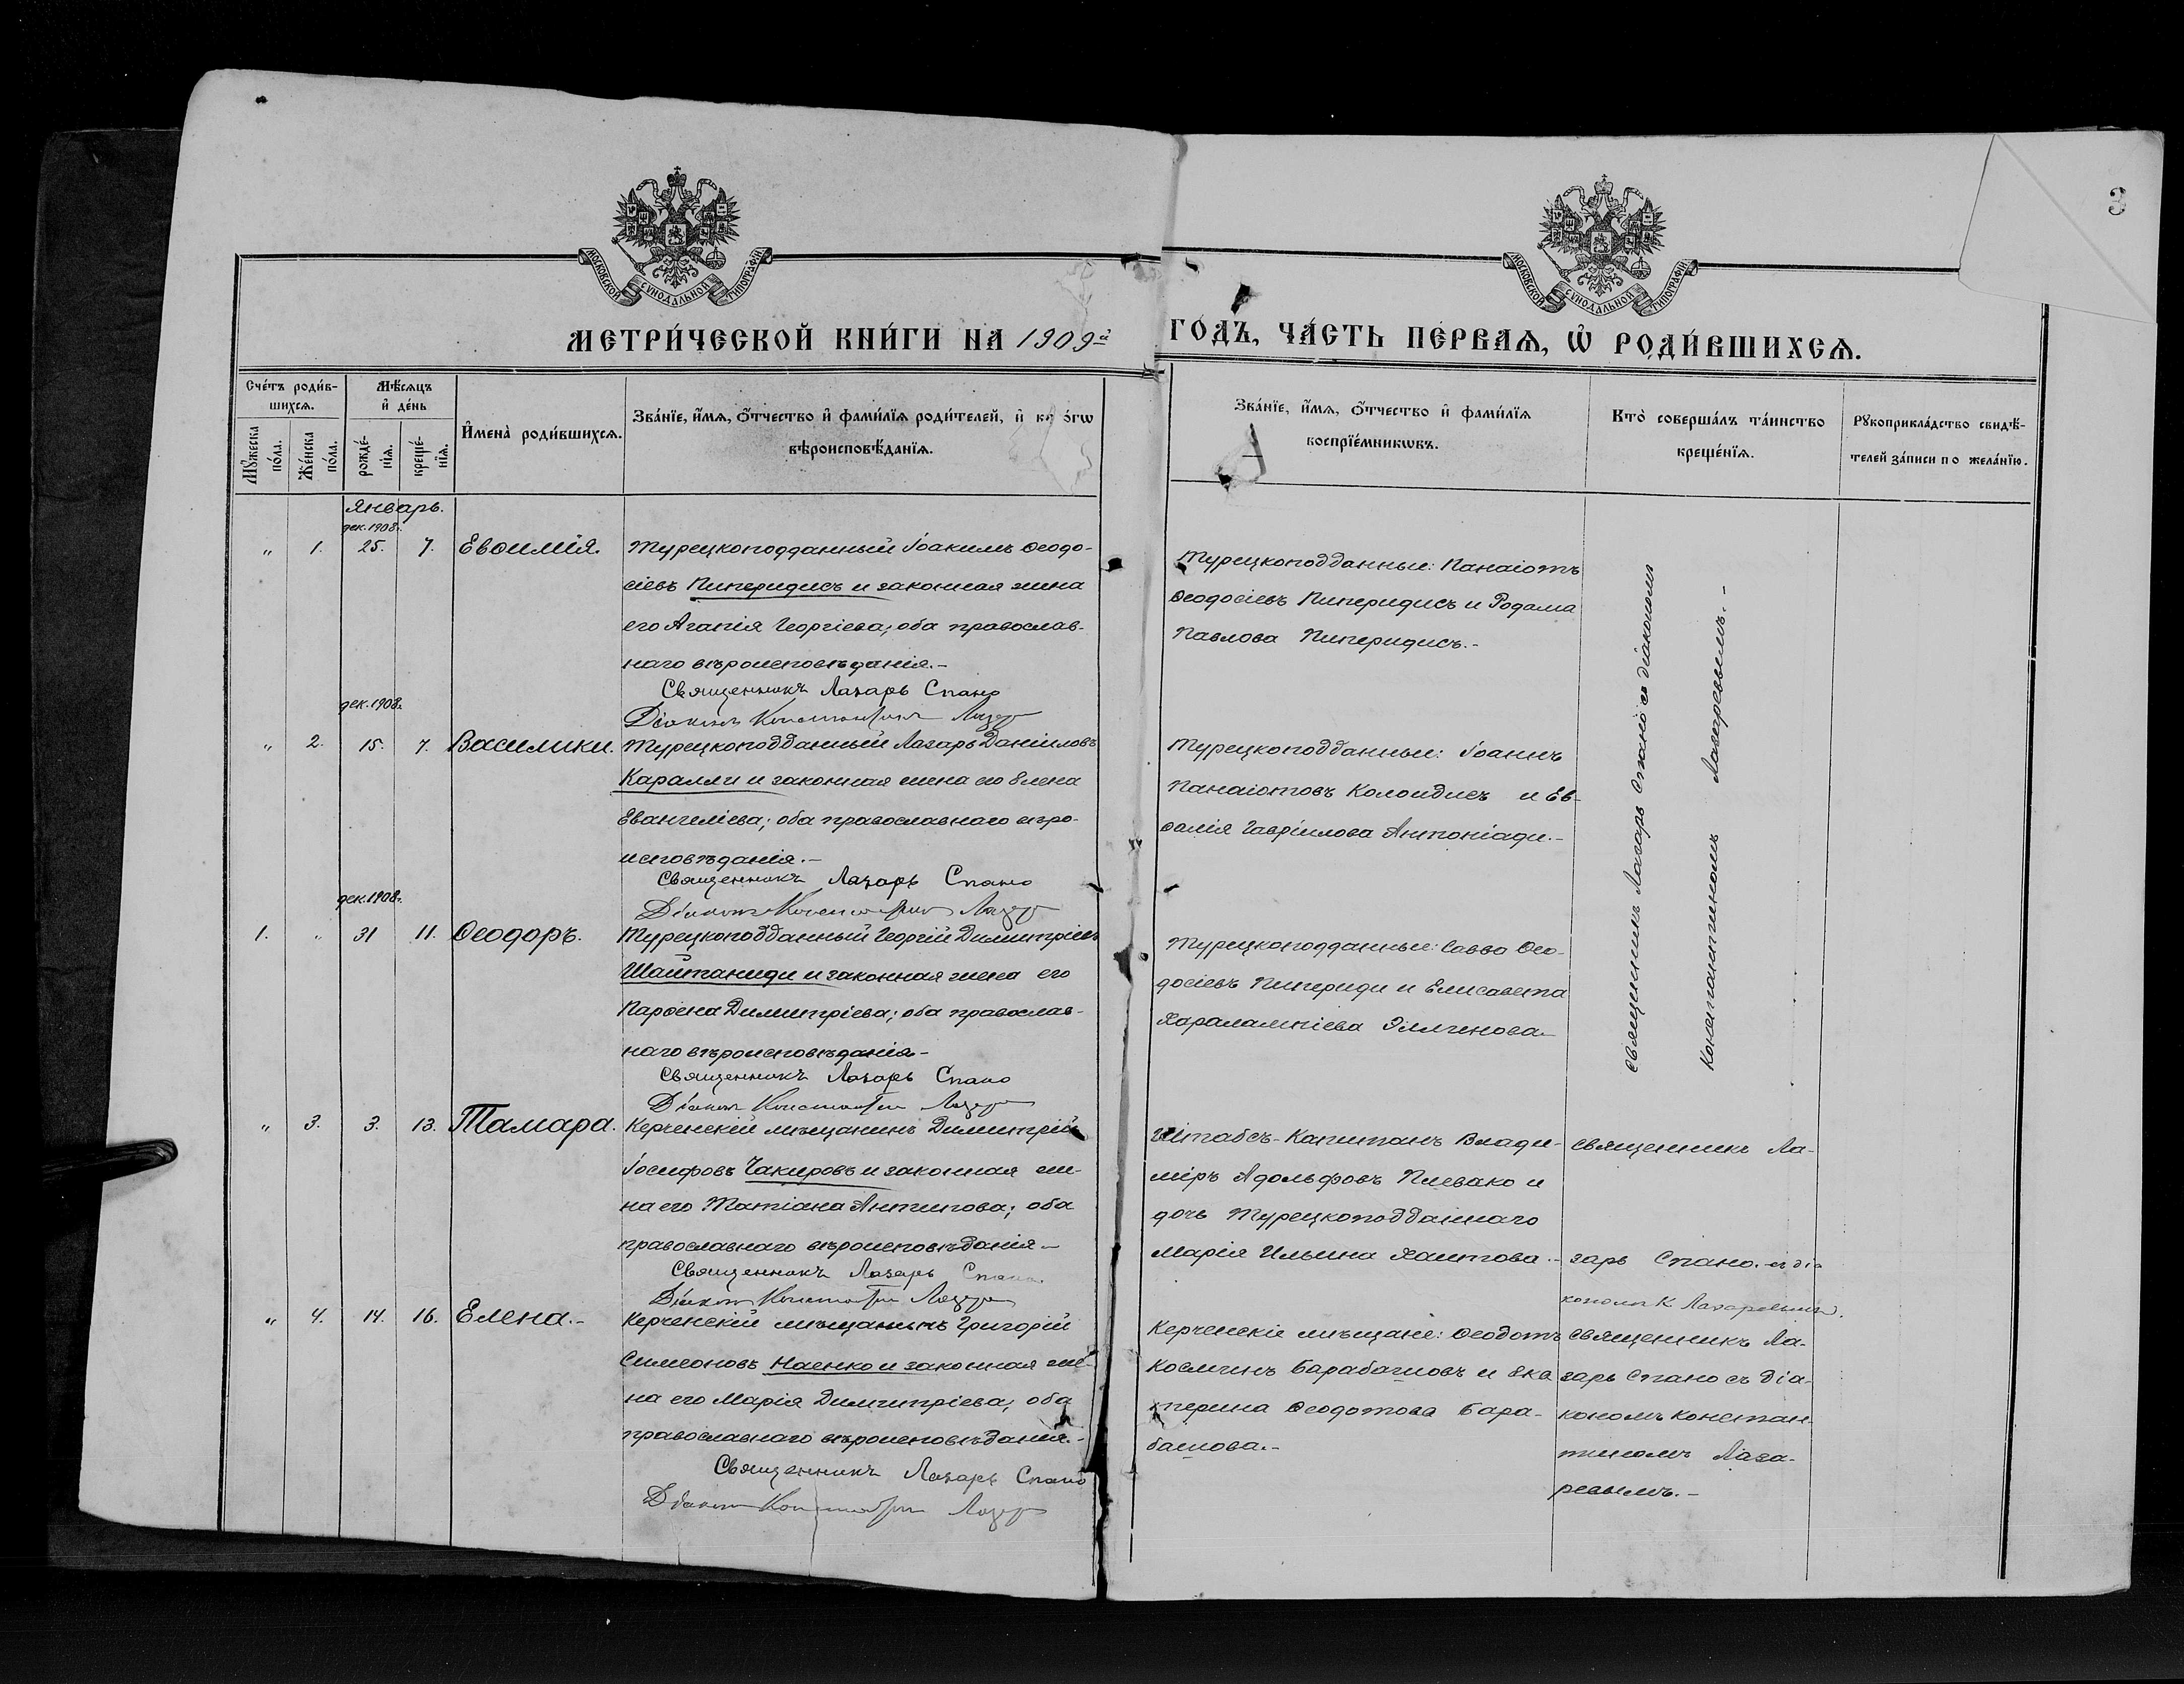 3
МОСКОВСКОЙ СѴНОДАЛЬНОЙ ТИПОГРАФІИ
МОСКОВСКОЙ СѴНОДАЛЬНОЙ ТИПОГРАФІИ
МЕТРИ́ЧЕСКОЙ КНИ́ГИ НА 1909й ГОДЪ, ЧА́СТЬ ПЕ́РВАѦ, Ѡ҆ РОДИ́ВШИХСѦ.
Сче́тъ роди́в-
шихсѧ.
Мꙋ́жеска
по́ла.
Же́нска
по́ла.
Мѣ́сѧцъ
и҆ де́нь
рожде́-
нїѧ.
креще́-
нїѧ.
И҆мена̀ роди́вшихсѧ.
Зва́нїе, и҆́мѧ, ѻ҆́тчество и҆ фами́лїѧ роди́телей, и҆ ко́гѡ
вѣроисповѣ́данїѧ.
Зва́нїе, и҆́мѧ, ѻ҆́тчество и҆ фами́лїѧ
воспрїе́мникѡвъ.
Кто̀ соверша́лъ та́инство
креще́нїѧ.
Рꙋкоприкла́дство свидѣ́-
телей за́писи по жела́нїю.
Январь.
дек. 1908г.
" 1. 25. 7. Евѳимія.
Турецкоподданный Іоакимъ Ѳеодо-
сіевъ Пиперидисъ и законная жена
его Агапія Георгіева; оба православ-
наго вѣроисповѣданія.-
Священникъ Лазарь Спано
Діаконъ Константинъ Лазар
Турецкоподданные: Панаіотъ
Ѳеодосіевъ Пиперидисъ и Родама
Павлова Пиперидисъ.-
Священникъ Лазарь Спано съ діакономъ
Константиномъ Лазаревымъ.-
дек. 1908г.
" 2. 15. 7. Василики.
Турецкоподданный Лазарь Даніиловъ
Каралли и законная жена его Елена
Евангеліева; оба православнаго вѣро-
исповѣданія.-
Священникъ Лазарь Спано
Діаконъ Константинъ Лазар
Турецкоподданные: Іоаннъ
Панаіотовъ Колоидисъ и Ев-
ѳимія Гавріилова Антоніади.-
дек. 1908г.
1. " 31 11. Ѳеодоръ.
Турецкоподданный Георгій Димитріевъ
Шайтаниди и законная жена его
Парѳена Димитріева; оба православ-
наго вѣроисповѣданія-
Священникъ Лазарь Спано
Діаконъ Константинъ Лазар
Турецкоподданные: Савва Ѳео-
досіевъ Пипериди и Елисавета
Харалампіева
" 3. 3. 13. Тамара.
Керченскій мѣщанинъ Димитрій
Іосифовъ Чакировъ и законная же-
на его Татіана Антипова; оба
православнаго вѣроисповѣданія-
Священникъ Лазарь Спано
Діаконъ Константинъ Лазар
Штабсъ-Капитанъ Влади-
міръ Адольфовъ Плевако и
дочь Турецкоподданнаго
Марія Ильина Хаитова.-
Священникъ Ла-
зарь Спано. съ діа
кономъ К Лазаревымъ.
" 4. 14. 16. Елена.-
Керченскій мѣщанинъ Григорій
Симеоновъ Наенко и законная же-
на его Марія Димитріева; оба
православнаго вѣроисповѣданія.-
Священникъ Лазарь Спано
Діаконъ Константинъ Лазар
Керченскіе мѣщане: Ѳеодотъ
Косминъ Барабашовъ и Ека
терина Ѳеодотова Бара-
башова.-
Священникъ Ла-
зарь Спано съ діа-
кономъ Констан
тиномъ Лаза-
ревымъ.-